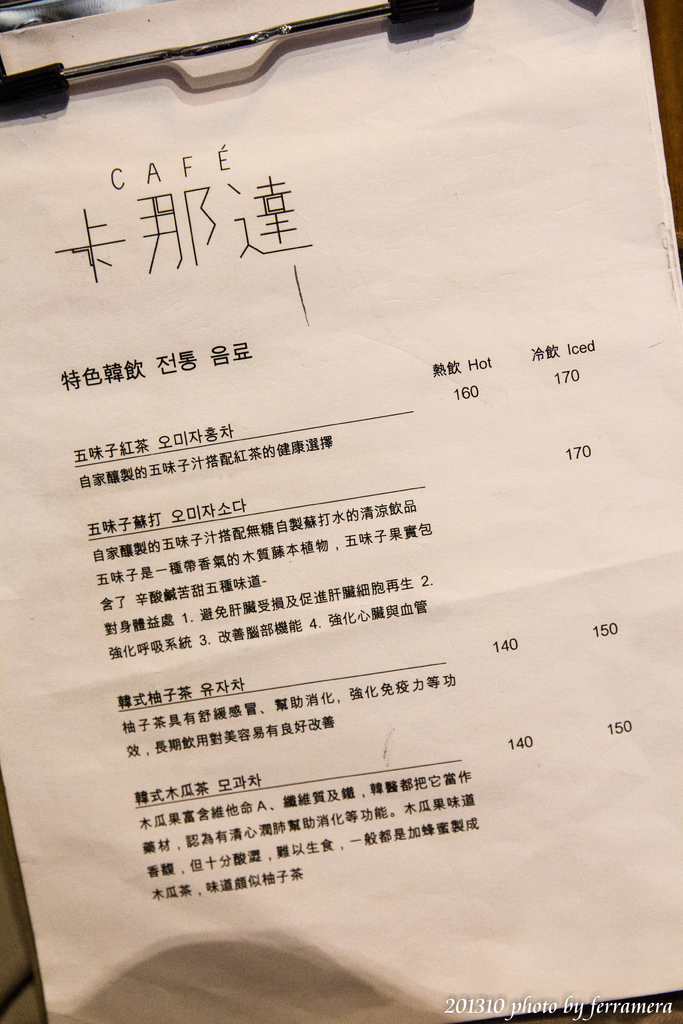 CAFÉ
卡那達
特色韓飲 전통 음료
熱飲 Hot 冷飲 Iced
160 170
五味子紅茶 오미자홍차
自家釀製的五味子汁搭配紅茶的健康選擇
170
五味子蘇打 오미자소다
自家釀製的五味子汁搭配無糖自製蘇打水的清涼飲品
五味子是一種帶香氣的木質藤本植物，五味子果實包
含了 辛酸鹹苦甜五種味道-
對身體益處 1. 避免肝臟受損及促進肝臟細胞再生 2.
強化呼吸系統 3. 改善腦部機能 4. 強化心臟與血管
140 150
韓式柚子茶 유자차
柚子茶具有舒緩感冒、幫助消化, 強化免疫力等功
效，長期飲用對美容易有良好改善
140 150
韓式木瓜茶 모과차
木瓜果富含維他命A、纖維質及鐵，韓醫都把它當作
藥材，認為有清心潤肺幫助消化等功能。木瓜果味道
香馥，但十分酸澀，難以生食，一般都是加蜂蜜製成
木瓜茶，味道頗似柚子茶
201310 photo by ferramera